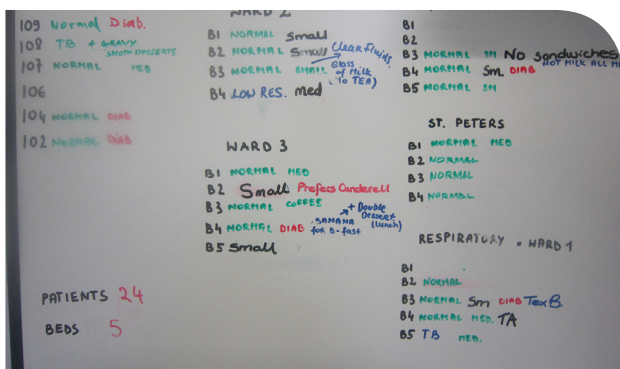 109 Normal Diab.
108 TB + GRAVY
SMOTH DESSERTS
107 NORMAL MED
106
104 NORMAL DIAB
102 NORMAL DIAB
PATIENTS 24
BEDS 5
WARD 2
B1 NORMAL Small
B2 NORMAL Small Clear Fluids
B3 NORMAL SMALL Glass of Milk (to TEA)
B4 LOW RES. med
WARD 3
B1 NORMAL MED
B2 Small Prefers Canderell
B3 NORMAL COFFEE
B4 NORMAL DIAB BANANA for B-fast + Double Dessert (lunch)
B5 Small
B1
B2
B3 NORMAL SM No sandwiches
B4 NORMAL Sm. DIAB HOT MILK ALL
B5 NORMAL SM
ST. PETERS
B1 NORMAL MED
B2 NORMAL
B3 NORMAL
B4 NORMAL
RESPIRATORY - WARD 1
B1
B2 NORMAL
B3 NORMAL Sm DIAB B.
B4 NORMAL MED. TA
B5 TB MED.